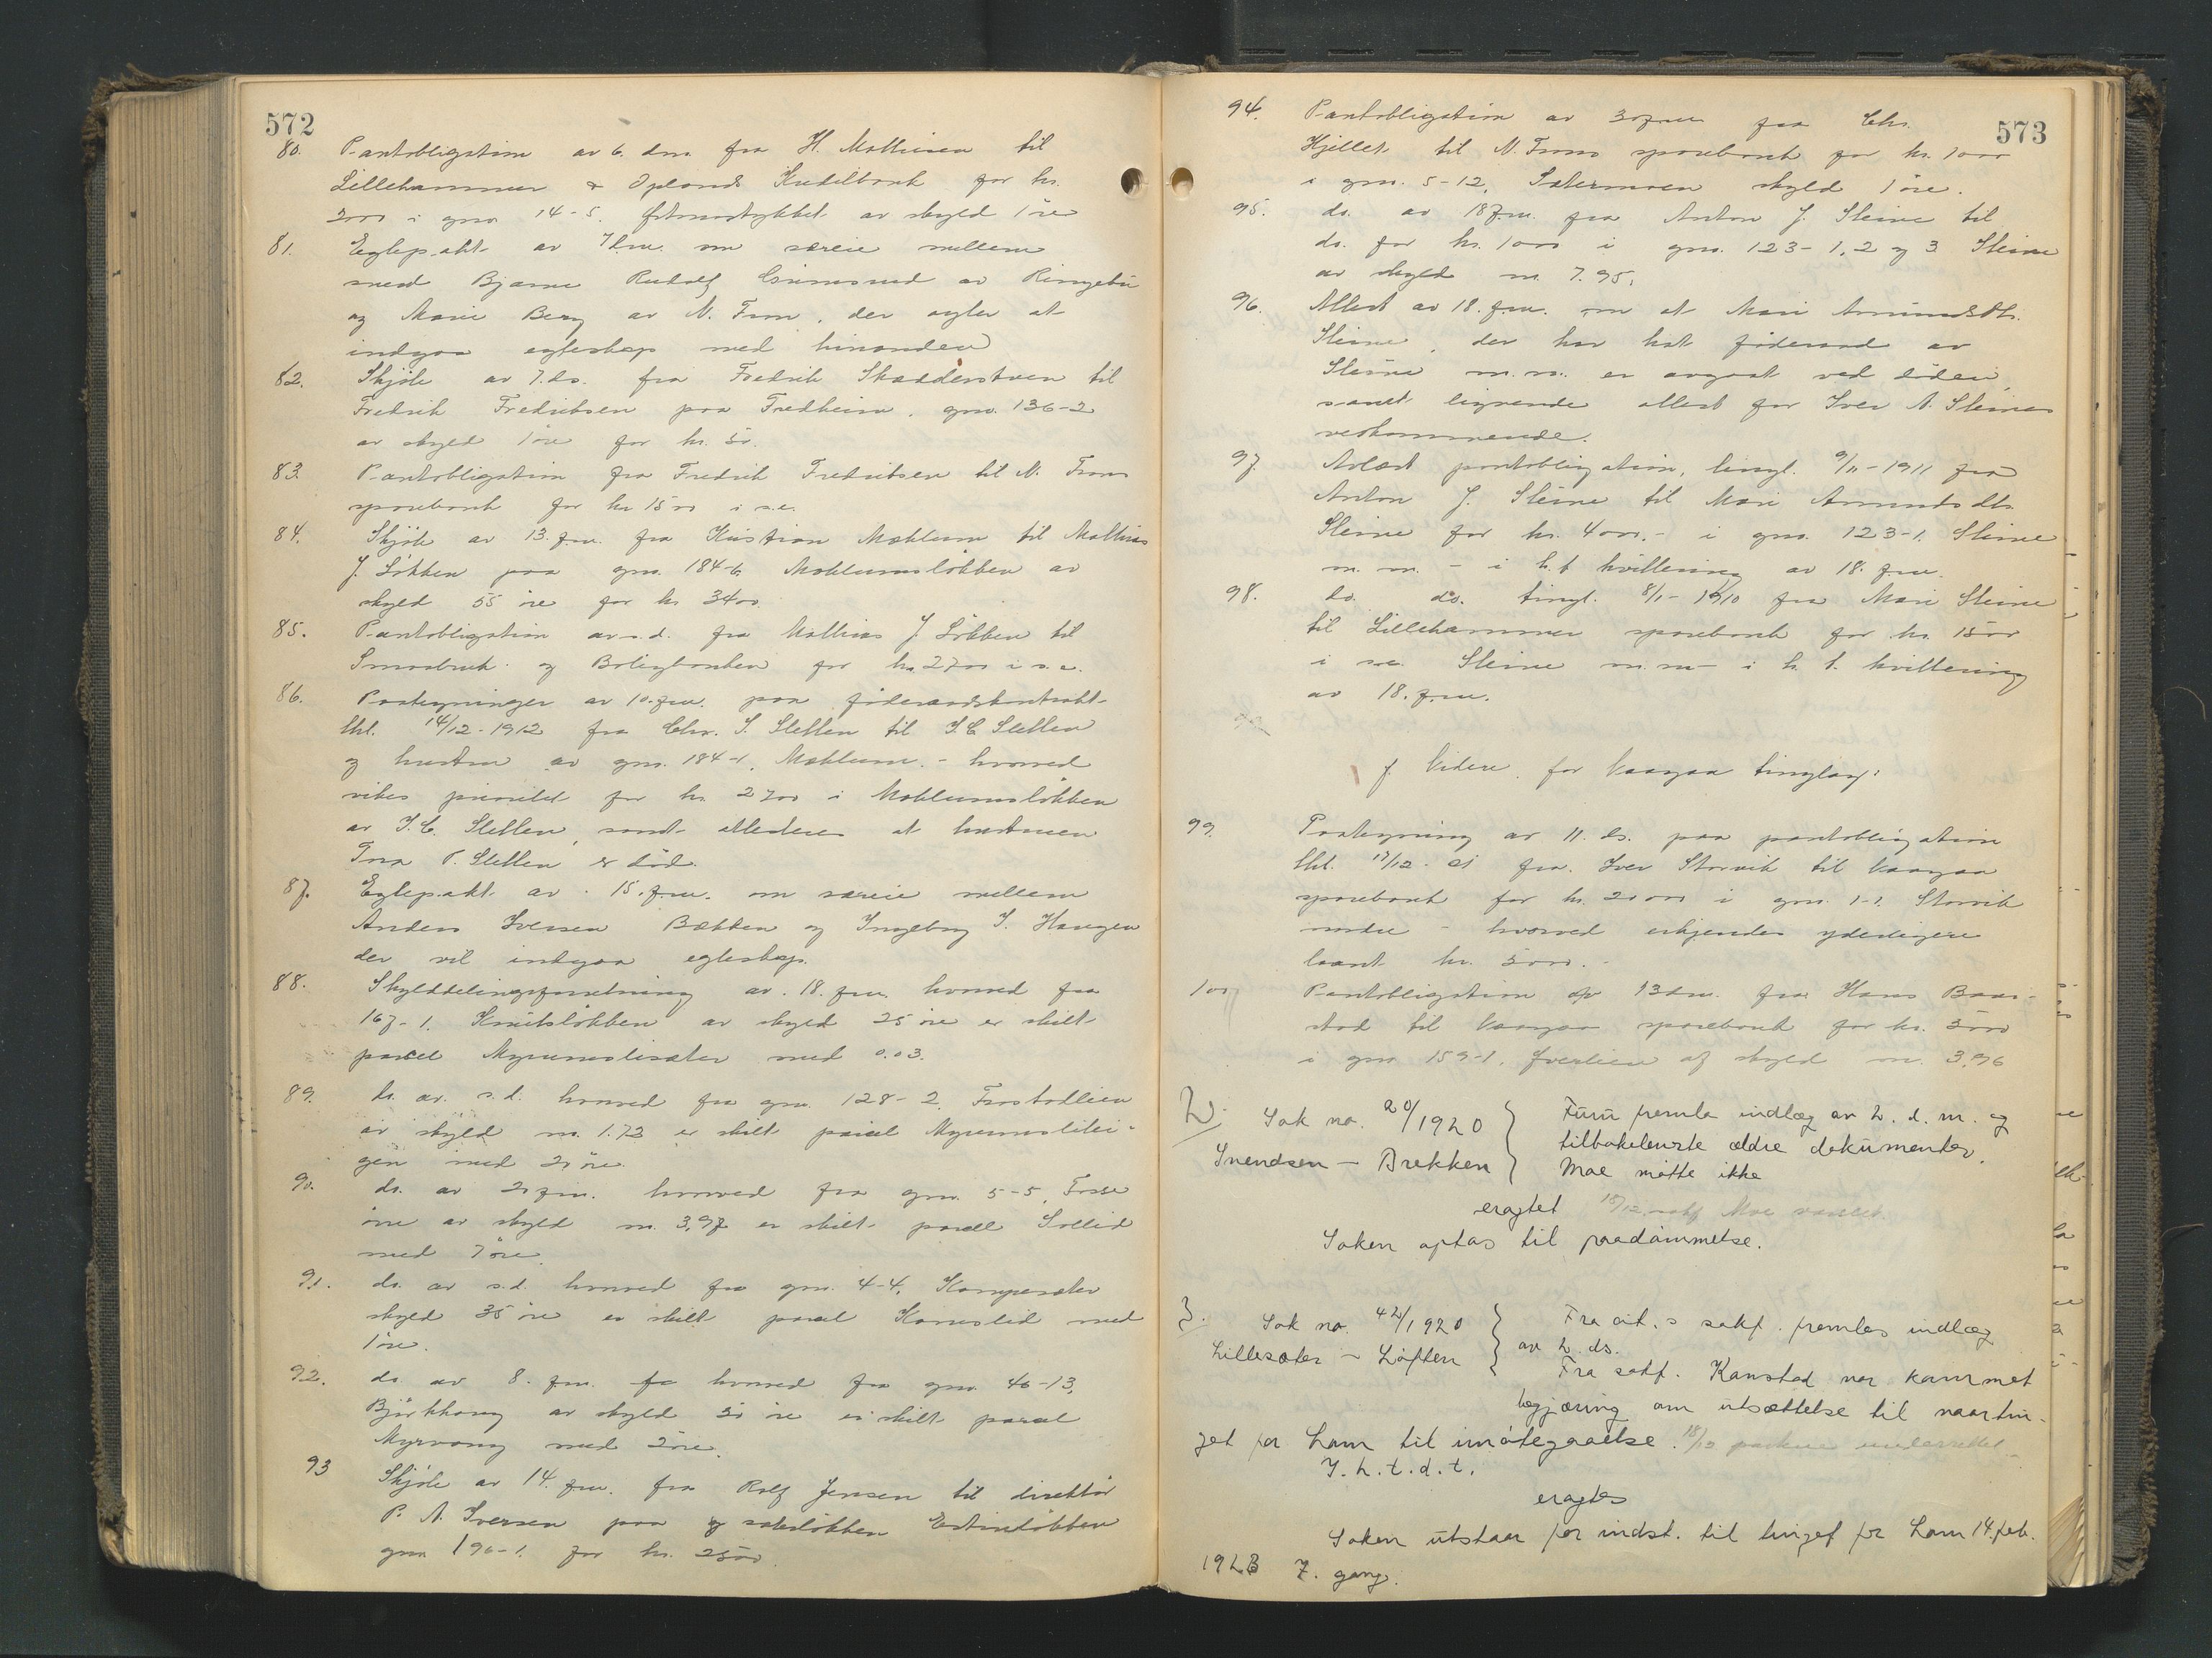 572
80. Pantobligation av 6. dm. fra H. Mathiesen til
Lillehammer & Oplands Kreditbank for kr.
3000 i gno. 14-5. av skyld 1 öre
81. Egtep.akt av 7 dm. om særeie mellem
smed Bjarne Rudolf Grimsrud av Ringebu
og Marie Berg av N. Fron, der agter at
indgaa egteskap med hinanden
82. Skjöte av 7. ds. fra Fredrik Skædderstuen til
Fredrik Fredriksen paa Fredheim, gno. 136-2
av skyld 1 öre for kr. 50.
83. Pantobligation fra Fredrik Fredriksen til N. Frons
sparebank for kr 1500 i s.e.
84. Skjöte av 13. f.m. fra Kristian Mæhlum til Mathias
J. Lökken paa gno. 184-6 Mæhlumslökken av
skyld 55 öre for kr 3400.
85. Pantobligation av s.d. fra Mathias J Lökken til
Smaabruk- og Boligbanken for kr. 2700 i s.e.
86. Paategninger av 10. f.m. paa föderaadskontrakt
thl. 14/12-1912 fra Chr. S. Sletten til S.C Sletten
og hustru av gno. 184-1, Mæhlum. - hvorved
vikes prioritet for kr. 2700 i Mæhlumslökken
av S.C. Sletten, samt attesteres at hustruen
P. Sletten er död.
87. Egtep.akt av 15. f.m. om særeie mellem
Anders Iversen Bækken og Ingeborg S. Haugen
der vil indgaa egteskap.
88. Skylddelingsforretning av 18. f.m. hvorved fra
167-1. Knutslökken av skyld 25 öre er skilt
parcel med 0.03.
89. do. av s.d. hvorved fra gno. 128-2,
av skyld m. 1.73 er skilt parcel
gen med 20 öre.
90. do. av 20 f.m. hvorved fra gno. 5-5, Fosse
öre av skyld m. 3,97 er skilt parcel Sollid
med 7 öre.
91. do. av s.d. hvorved fra gno. 4-4,
skyld 35 öre er skilt parcel med
1 öre.
92. do. av 8. f.m. hvorved fra gno. 46-13,
Björkhaug av skyld 30 öre er skilt parcel
Myrvang med 2 öre.
93 Skjöte av 14. f.m. fra Rolf Jensen til direktör
P. A. Iversen paa
gno 196-1 for kr. 2500.
573
94. Pantobligation av 30 f.m. fra Chr.
til N. Frons sparebank for kr. 1000
i gno. 5-12, skyld 1 öre.
95. do. av 18 f.m. fra Anton J. Steine til
do. for kr. 1000 i gno. 123-1, 2 og 3 Steine
av skyld m. 7.95.
96. Attest av 18. f.m. om at Mari Amundsdtr.
Steine, der har hat föderaad av
Steine m.m. er avgaat ved döden,
samt lignende attest for Iver A. Steines
vedkommende.
97. Avlæst pantobligation, tingl. 9/11-1911 fra
Anton J. Steine til Mari Amundsdtr.
Steine for kr. 4000.- i gno. 123-1. Steine
m.m. - i h.t. kvittering av 18. f.m.
98. do. do. tingl. 8/1-1910 fra Mari Steine
til Lillehammer sparebank for kr. 1500
i s.e. Steine m.m. - i h.t. kvittering
av 18. f.m.
f. Videre for Vaagaa tinglag:
99. Paategning av 11. ds. paa pantobligation
thl. 17/12-21 fra Iver Storvik til Vaagaa
sparebank for kr. 20000 i gno. 1-1. Storvik
nordre - hvorved erkjendes yderligere
laant kr. 5000.-
100 Pantobligation av 13 dm. fra Hans Baar-
stad til Vaagaa sparebank for kr. 5000
i gno 159-1. af skyld m. 3,96
2. Sak no. 20/1920
Svendsen — Brekken
Furu femla indlæg av 2. d. m. og
tilbakeleverte ældre dokumenter.
Moe mötte ikke
eragtet 18/12 Moe varslet.
Saken optas til paadömmelse.
3. Sak no. 42/1920
Lillesæter - Löften
Fra cit.s sakf. femla indlæg
av 2. ds.
Fra sakf. Kamstad var kommet
begjæring om utsættelse til vaartin-
get for Lom til imötegaaelse. 18/12
I.h.t.d.t.
eragtes
Saken utstaar for indst. til tinget for Lom 14. feb.
1923 7. gang.